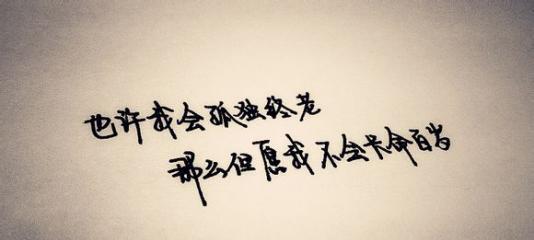 也许我会孤独终老
那么但愿我不会长命百岁